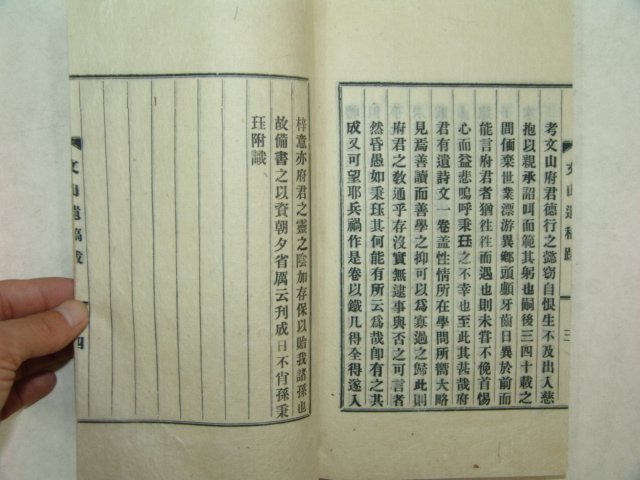 考文山府君德行之懿窃自恨生不及出入慈
抱以親承詔呌而範其躬也嗣後三四十載之
間偭棄世業漂游異鄕頭顱牙齒日異於前而
能言府君者猶徃徃而遇也則未嘗不俛首惕
心而益悲嗚呼秉珏之不幸也至此其甚哉府
君有遺詩文一卷盖性情所在學問所嚮大略
見焉善讀而善學之抑可以爲寡過之歸此則
府君之敎通乎存沒實無逮事與否之可言者
然昏愚如秉珏其何能有所云爲哉卽有之其
成又可望耶兵禍作是卷以鐵几得全得遂入
文山遺稿跋
三
梓意亦府君之靈之陰加存保以貽我諸孫也
故備書之以資朝夕省厲云刋成日不肖孫秉
珏附識
文山遺稿跋
四